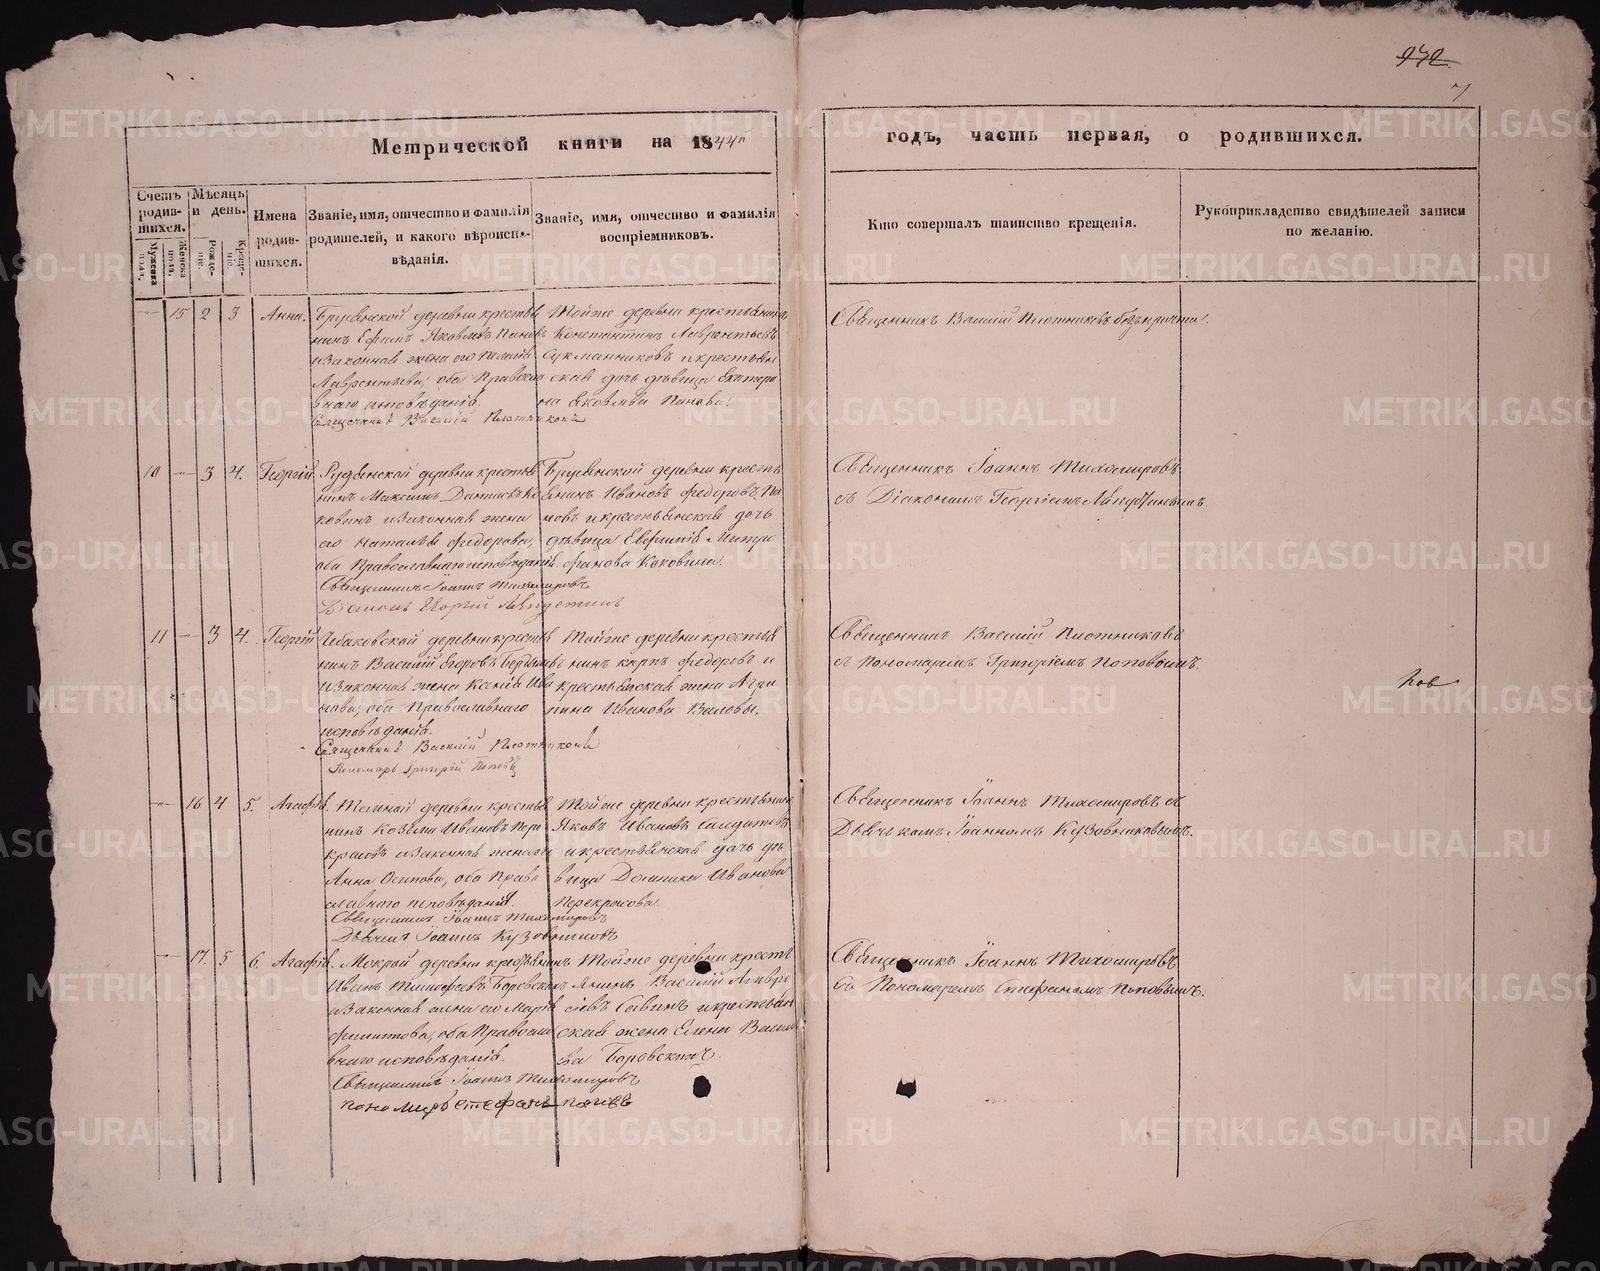 942
7
Метрической книги на 1844й
годъ, часть первая, о родившихся.
Счетъ родив-шихся.
Мѣсяцъ и день.
Имена родив-шихся.
Званіе, имя, отчество и фамилія родителей, и какого вѣроиспо-вѣданія.
Званіе, имя, отчество и фамилія воспріемниковъ.
Кто совершалъ таинство крещенія.
Рукоприкладство свидѣтелей записи по желанію.
Мужеска полъ.
Женска полъ.
Рожде-ніе.
Креще-ніе.
15 2 3 Анна.
Брусянской деревни крестья
нинъ Ефимъ Яковлевъ Пановъ
и законная жена его
Лаврентьева, оба Православ
наго исповѣданія.
Священникъ Василій Плотниковъ
Тойже деревни крестьянинъ
Константинъ Лаврентьевъ
и крестьян
ская дочь дѣвица Екатери
на Яковлева Панова.
Священникъ Василій Плотниковъ безъ причта.
10 3 4. Георгій.
деревни крестья
нинъ Максимъ Даниловъ Ко
ковинъ и законная жена
его Наталья Федорова,
оба Православнаго исповѣданія.
Священникъ Іоаннъ Тихомировъ
Брусянской деревни кресть
янинъ Ивановъ Федоровъ Па
новъ и крестьянская дочь
дѣвица Евфимія Митро
фанова Коковина.
Священникъ Іоаннъ Тихомировъ
съ Діакономъ Георгіемъ
11 3 4. Георгій
Чебаковской деревни крестья
нинъ Василій Егоровъ
и законная жена Ксенія Ива
нова, оба Православнаго
исповѣданія.
Священникъ Василій Плотниковъ
Пономарь Григорій Поповъ
Тойже деревни крестья
нинъ Карпъ Федоровъ и
крестьянская жена Агри
пина Иванова Валовы.
Священникъ Василій Плотниковъ
съ Пономаремъ Григоріемъ Поповымъ.
16 4 5. Агафія.
Темной деревни крестья
нинъ Козьма Ивановъ Пере
красовъ и законная жена его
Анна Осипова, оба Право
славнаго исповѣданія.
Священникъ Іоаннъ Тихомировъ
Дьячекъ Іоаннъ Кузовниковъ
Тойже деревни крестьянинъ
Яковъ Ивановъ
и крестьянская дочь дѣ
вица Домника Иванова
Перекрасова.
Священникъ Іоаннъ Тихомировъ съ
Дьячкомъ Іоанномъ Кузовниковымъ.
17. 5 6. Агафія.
Мокрой деревни крестьянинъ
Иванъ Тимофеевъ Боровскихъ
и законная жена его Марія
Филиппова, оба Православ
наго исповѣданія.
Священникъ Іоаннъ Тихомировъ
Пономарь Стефанъ Поповъ
Тойже деревни кресть
янинъ Василій Амвро
сіевъ и крестьян
ская жена Елена Василь
ева Боровскихъ.
Священникъ Іоаннъ Тихомировъ
съ Пономаремъ Стефаномъ Поповымъ.
METRIKI.GASO-URAL.RU